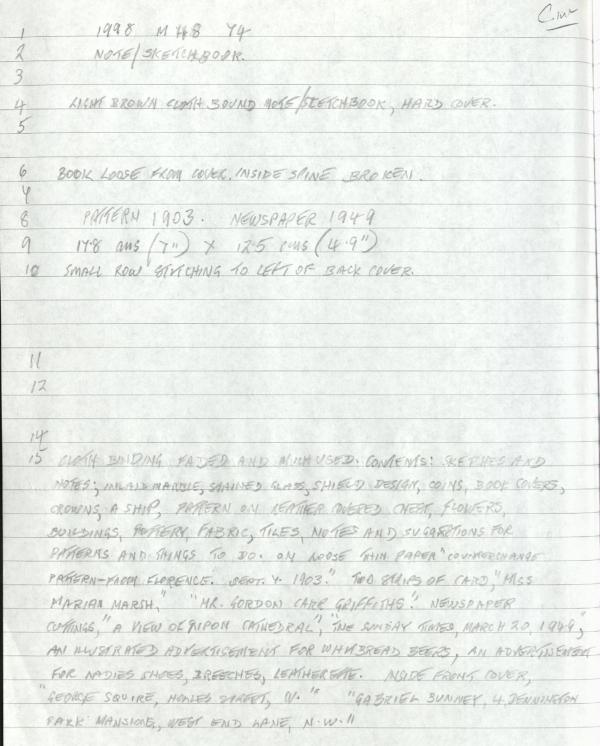 1 1998 M H8 74
2 NOTE/SKETCHBOOK.
3
4 LIGHT BROWN CLOTH BOUND NOTE/SKETCHBOOK, HARD COVER.
5
6 BOOK LOOSE FROM COVER. INSIDE SPINE BROKEN.
7
8 PATTERN 1903. NEWSPAPER 1949
9 17.8 cms (7") X 12.5 cms (4.9")
10 SMALL ROW STITCHING TO LEFT OF BACK COVER.
11
12
14
15 CLOTH BINDING FADED AND MUCH USED. CONTENTS: SKETHES AND
NOTES; INLAID MARBLE, STAINED GLASS, SHIELD DESIGN, COINS, BOOK COVERS,
CROWNS, A SHIP, PATTERN ON LEATHER COVERED CHEST, FLOWERS,
BUILDINGS, POTTERY, FABRIC, TILES, NOTES AND SUGGESTIONS FOR
PATTERNS AND THINGS TO DO. ON LOOSE THIN PAPER "COUNTERCHANGE
PATTERN-FROM FLORENCE. SEPT. 4. 1903." TWO STRIPS OF CARD, "MISS
MARIAN MARSH," "MR. GORDON CARR GRIFFITHS." NEWSPAPER
CUTTINGS, "A VIEW OF RIPON CATHEDRAL", "THE SUNDAY TIMES, MARCH 20, 1949",
AN ILLUSTRATED ADVERTISEMENT FOR WHITBREAD BEERS, AN ADVERTISEMENT
FOR LADIES SHOES, BREECHES, LEATHERETTE. INSIDE FRONT COVER,
"GEORGE SQUIRE, HOWLES STREET, W." "GABRIEL BUNNEY, 4, DENNINGTON
PARK MANSIONS, WEST END LANE, N.W."